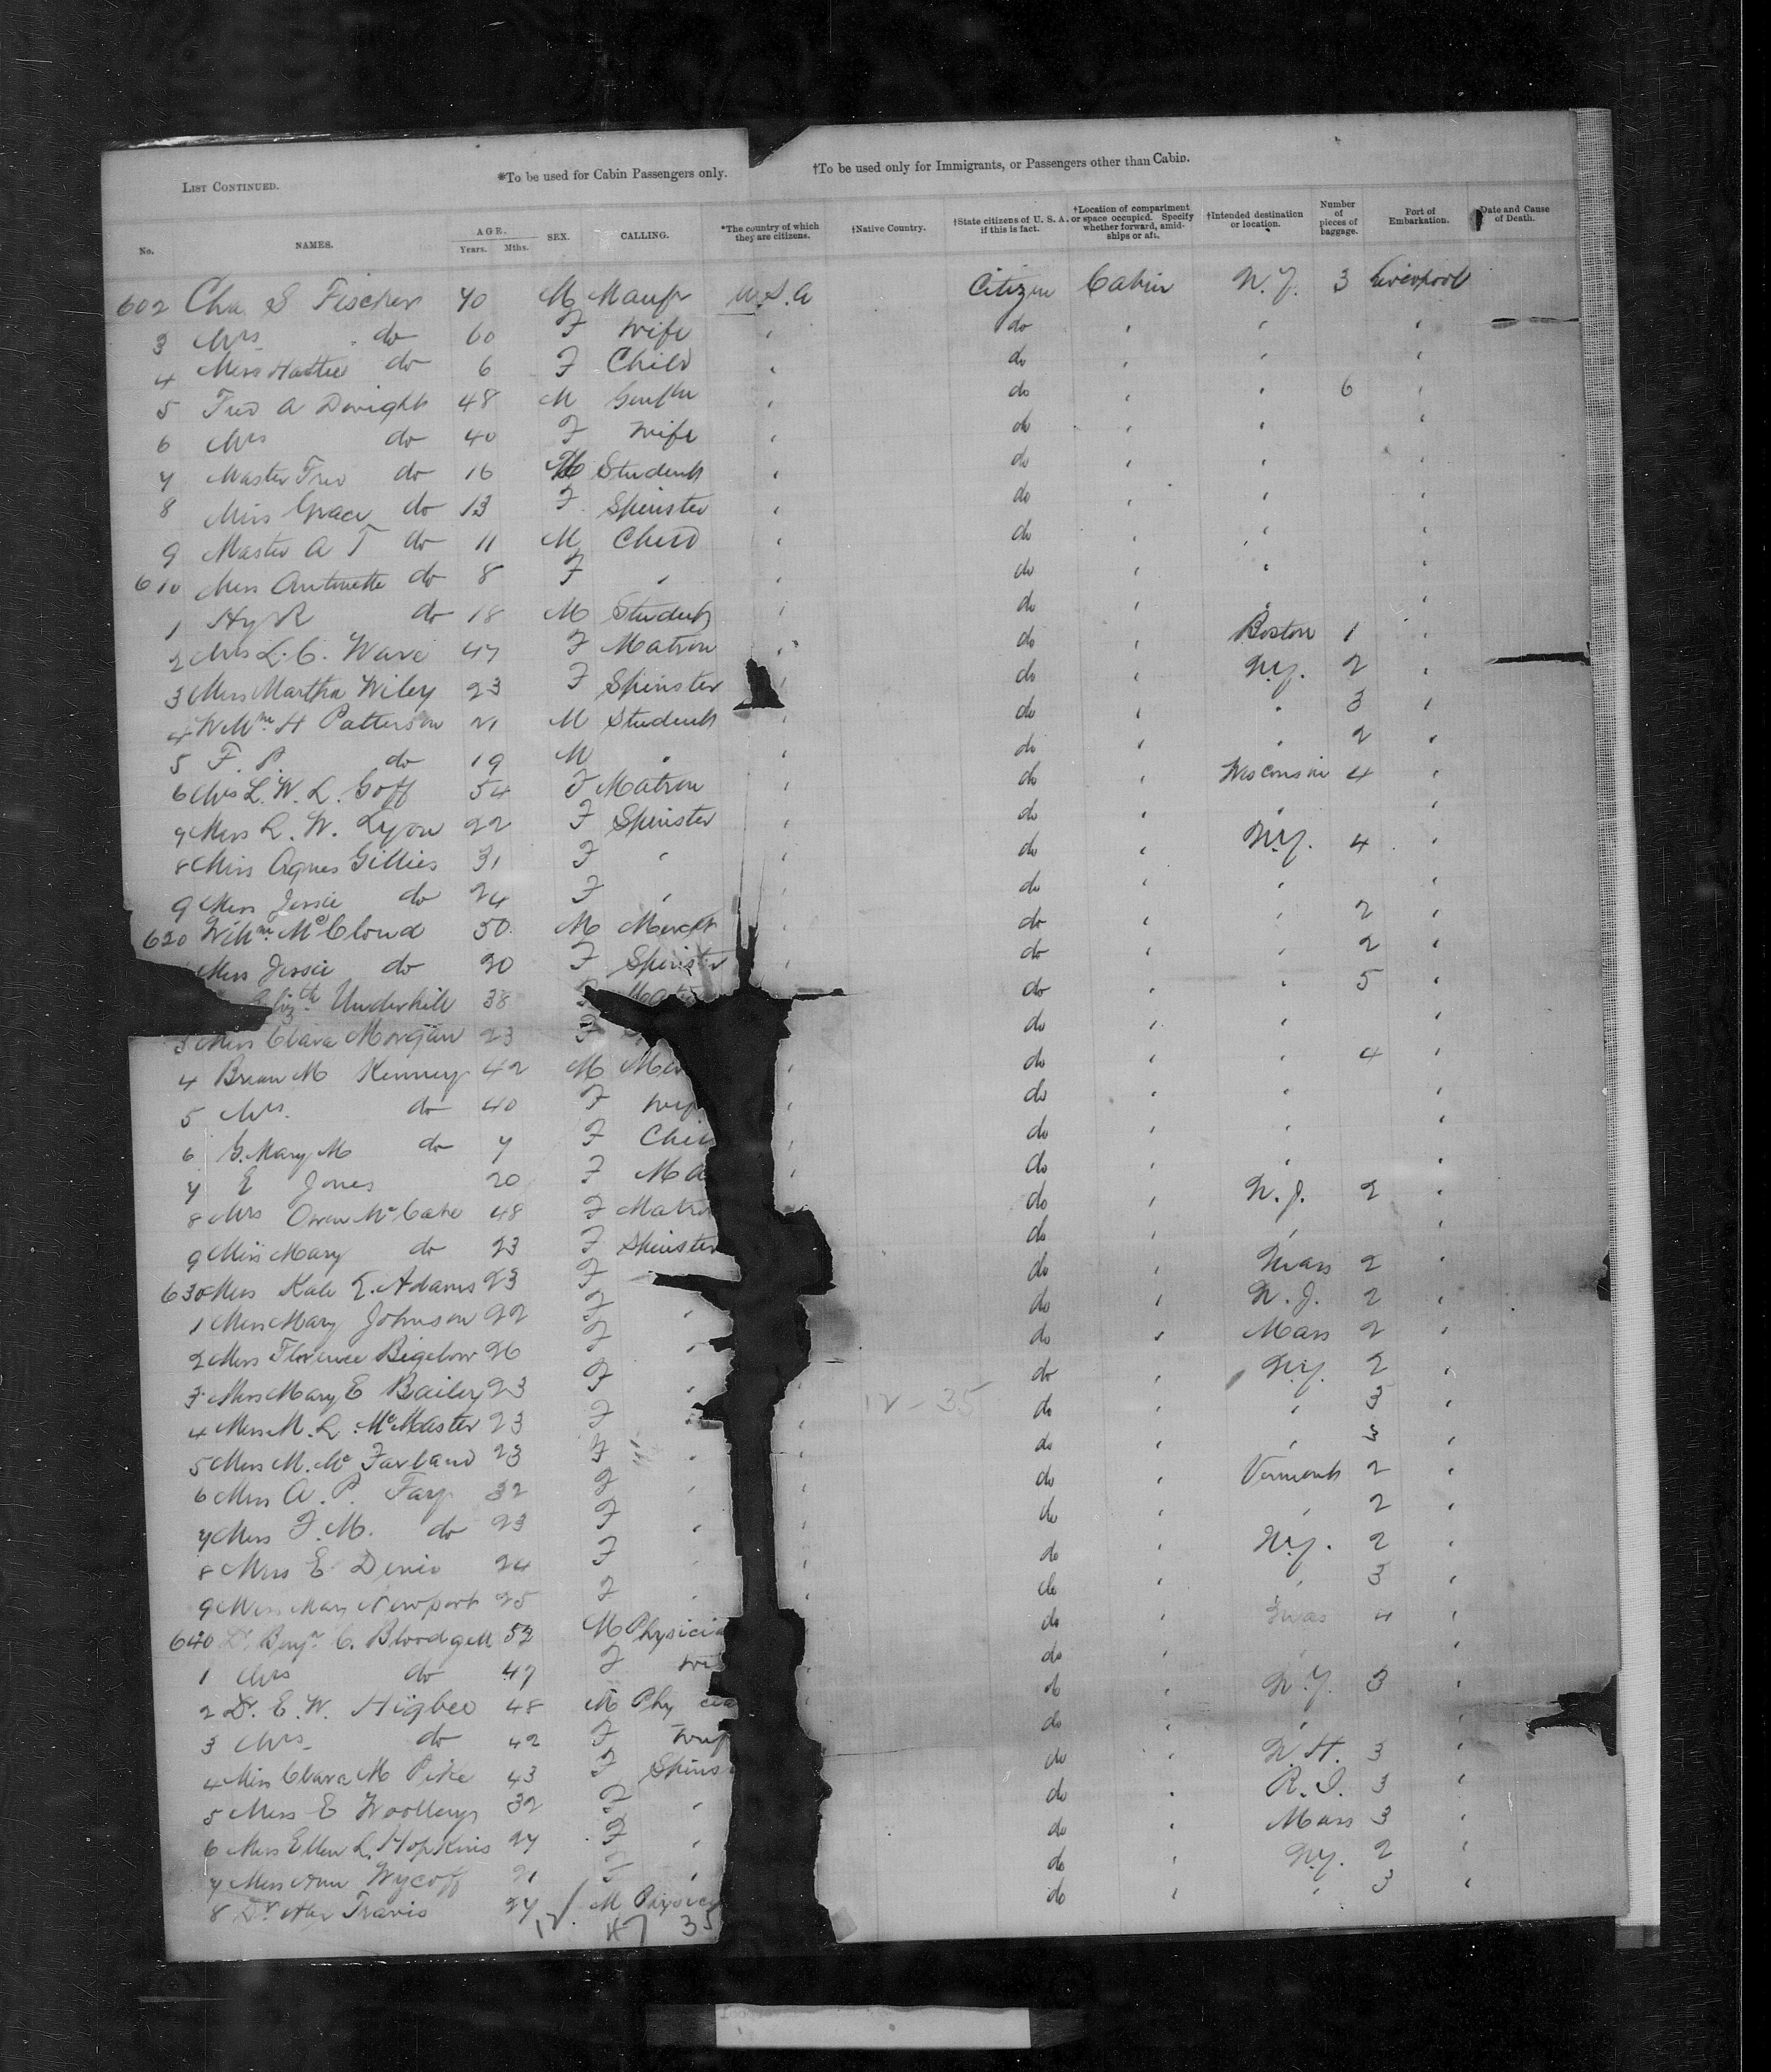 LIST CONTINUED. *To be used for Cabin Passengers only. †To be used only for Immigrants, or Passengers other than Cabin.
No. NAMES. AGE. Years. Mths. SEX. CALLING. *The country of which they are citizens. †Native Country. †State citizens of U. S. A. if this is fact. †Location of compartment or space occupied. Specify whether forward, amid-ships or aft. †Intended destination or location. Number of pieces of baggage. Port of Embarkation. Date and Cause of Death.
602 Cha S Fischer 40 M Manfr U.S.A Citizen Cabin N.Y. 3 Liverpool
3 Mrs do 60 F Wife " do " " "
4 Miss Hattie do 6 F Child " do " " "
5 Fred A Dwight 48 M " do " " 6 "
6 Mrs do 40 F Wife " do " " "
7 Master Fred do 16 M Student " do " " "
8 Miss Grace do 13 F Spinster " do " " "
9 Master A T do 11 M Child " do " " "
610 Miss Antinette do 8 F " " do " " "
1 Hy R do 18 M Student " do " " "
2 Mrs L. C. Ware 47 F Matron " do " Boston 1 "
3 Miss Martha Wiley 23 F Spinster " do " N.Y. 2 "
4 Wm H Patterson 21 M Student " do " " 3 "
5 F. P. do 19 M " " do " " 2 "
6 Mrs L. W. L. Goff 54 F Matron " do " Wisconsin 4 "
7 Miss L. W. Lyon 22 F Spinster " do " " "
8 Miss Agnes Gillies 31 F " " do " N.Y. 4 "
9 Miss Jessie do 24 F " " do " " "
620 Willm McCloud 50 M Mercht " do " " 2 "
Miss Jessie do 20 F Spinster " do " " 2 "
Elizth Underhill 38 F Matro do " " 5 "
3 Miss Clara Morgan 23 F do " " "
4 Brian M Kenney 42 M Mer " do " " 4 "
5 Mrs. do 40 F Wif " do " " "
6 G. Mary M do 7 F Chil " do " " "
7 E Jones 20 F Ma " do " " "
8 Mrs Owen McCabe 48 F Matro do " N.J. 2 "
9 Miss Mary do 23 F Spinster do " " "
630 Miss Kate E. Adams 23 F do " Mass 2 "
1 Miss Mary Johnson 22 F " do " N.J. 2 "
2 Miss Florence Bigelow 26 F " do " Mass 2 "
3 Miss Mary E Bailey 23 F " " do " N.Y. 2 "
4 Miss M. L. McMaster 23 F " " 12 - 35 do " " 3 "
5 Miss M. McFarland 23 F " " do " " 3 "
6 Miss A. P. Fary 32 F " " do " Vermont 2 "
7 Miss F. M. do 23 F " " do " " 2 "
8 Miss E Denio 24 F " " do " N.Y. 2 "
9 Miss Mary Newport 25 F " " do " " 3 "
640 Dr. Benjn C. Bloodgell 52 M Physicia do " 4 "
1 Mrs do 47 F Wi " do " " "
2 Dr. E. W. Higbee 48 M Phy cia " do " N.Y. 3 "
3 Mrs do 42 F Wif do " " "
4 Miss Clara M Pike 43 F Spins do " N.H. 3 "
5 Miss E Woolleys 32 F " do " R.I. 3 "
6 Miss Ellen L. Hopkins 27 F " do " Mass 3 "
7 Miss Ann Wycoff 21 F " do " N.Y. 2 "
8 Dr. Travis 27 M Physici do " " 3 "
12 47 35